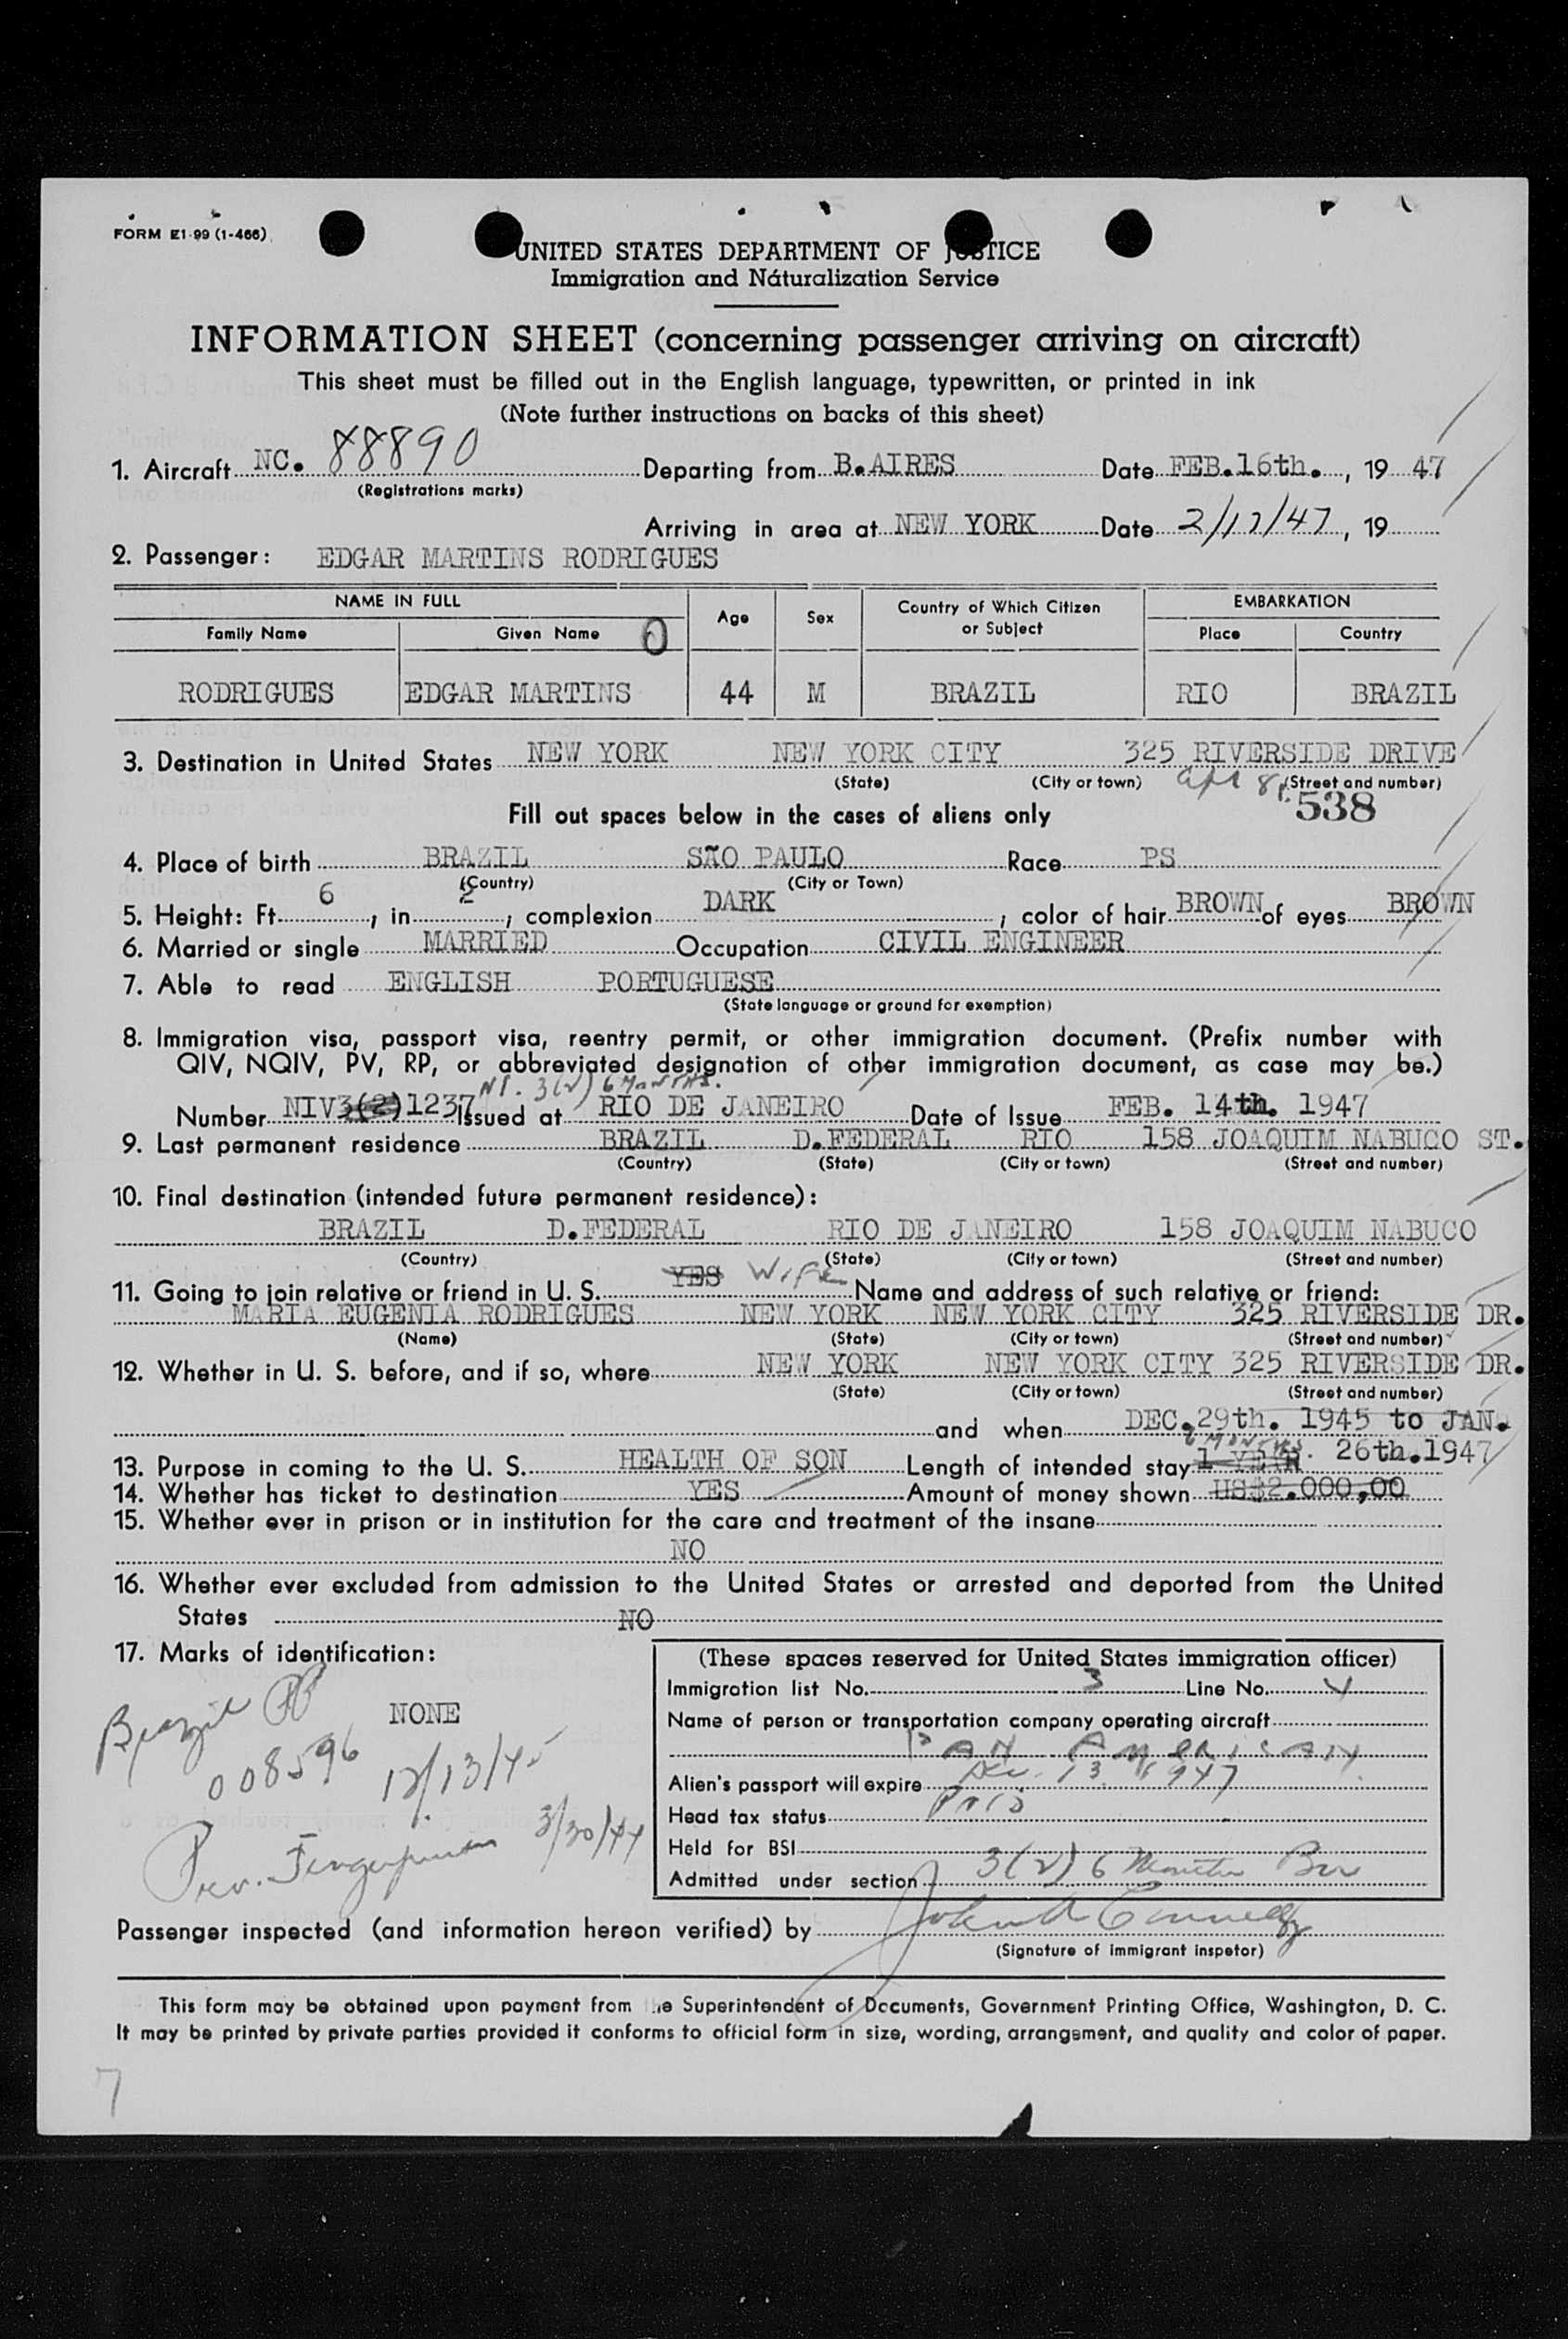 FORM E1-99 (1-466)
UNITED STATES DEPARTMENT OF JUSTICE
Immigration and Naturalization Service
INFORMATION SHEET (concerning passenger arriving on aircraft)
This sheet must be filled out in the English language, typewritten, or printed in ink
(Note further instructions on backs of this sheet)
1. Aircraft NC. 88890 Departing from B.AIRES Date FEB.16th., 19 47
(Registrations marks)
Arriving in area at NEW YORK Date 2/17/47, 19
2. Passenger: EDGAR MARTINS RODRIGUES
NAME IN FULL Age Sex Country of Which Citizen or Subject EMBARKATION
Family Name Given Name O Place Country
RODRIGUES EDGAR MARTINS 44 M BRAZIL RIO BRAZIL
3. Destination in United States NEW YORK NEW YORK CITY 325 RIVERSIDE DRIVE
(State) (City or town) apt 8 (Street and number)
Fill out spaces below in the cases of aliens only 538
4. Place of birth BRAZIL SÃO PAULO Race PS
(Country) (City or Town)
5. Height: Ft. 6, in 2, complexion DARK; color of hair BROWN of eyes BROWN
6. Married or single MARRIED Occupation CIVIL ENGINEER
7. Able to read ENGLISH PORTUGUESE
(State language or ground for exemption)
8. Immigration visa, passport visa, reentry permit, or other immigration document. (Prefix number with
QIV, NQIV, PV, RP, or abbreviated designation of other immigration document, as case may be.)
3(2) 6 MONTHS.
Number NIV3(2)1237 Issued at RIO DE JANEIRO Date of Issue FEB. 14th. 1947
9. Last permanent residence BRAZIL D.FEDERAL RIO 158 JOAQUIM NABUCO ST.
(Country) (State) (City or town) (Street and number)
10. Final destination (intended future permanent residence):
BRAZIL D.FEDERAL RIO DE JANEIRO 158 JOAQUIM NABUCO
(Country) (State) (City or town) (Street and number)
11. Going to join relative or friend in U. S. YES Wife Name and address of such relative or friend:
MARIA EUGENIA RODRIGUES NEW YORK NEW YORK CITY 325 RIVERSIDE DR.
(Name) (State) (City or town) (Street and number)
12. Whether in U. S. before, and if so, where NEW YORK NEW YORK CITY 325 RIVERSIDE DR.
(State) (City or town) (Street and number)
and when DEC.29th. 1945 to JAN.
6 MONTHS. 26th.1947
13. Purpose in coming to the U. S. HEALTH OF SON Length of intended stay 1 YEAR
14. Whether has ticket to destination YES Amount of money shown US$2.000,00
15. Whether ever in prison or in institution for the care and treatment of the insane
NO
16. Whether ever excluded from admission to the United States or arrested and deported from the United
States NO
17. Marks of identification:
NONE
Brazil PP
008596 12/13/45
Prev. Fingerprints 3/30/44
(These spaces reserved for United States immigration officer)
Immigration list No. 3 Line No. 4
Name of person or transportation company operating aircraft
PAN AMERICAN
Alien's passport will expire Dec. 13, 1947
Head tax status Paid
Held for BSI
Admitted under section 3(2) 6 Months
Passenger inspected (and information hereon verified) by John Connelly
(Signature of immigrant inspetor)
This form may be obtained upon payment from the Superintendent of Documents, Government Printing Office, Washington, D. C.
It may be printed by private parties provided it conforms to official form in size, wording, arrangement, and quality and color of paper.
7